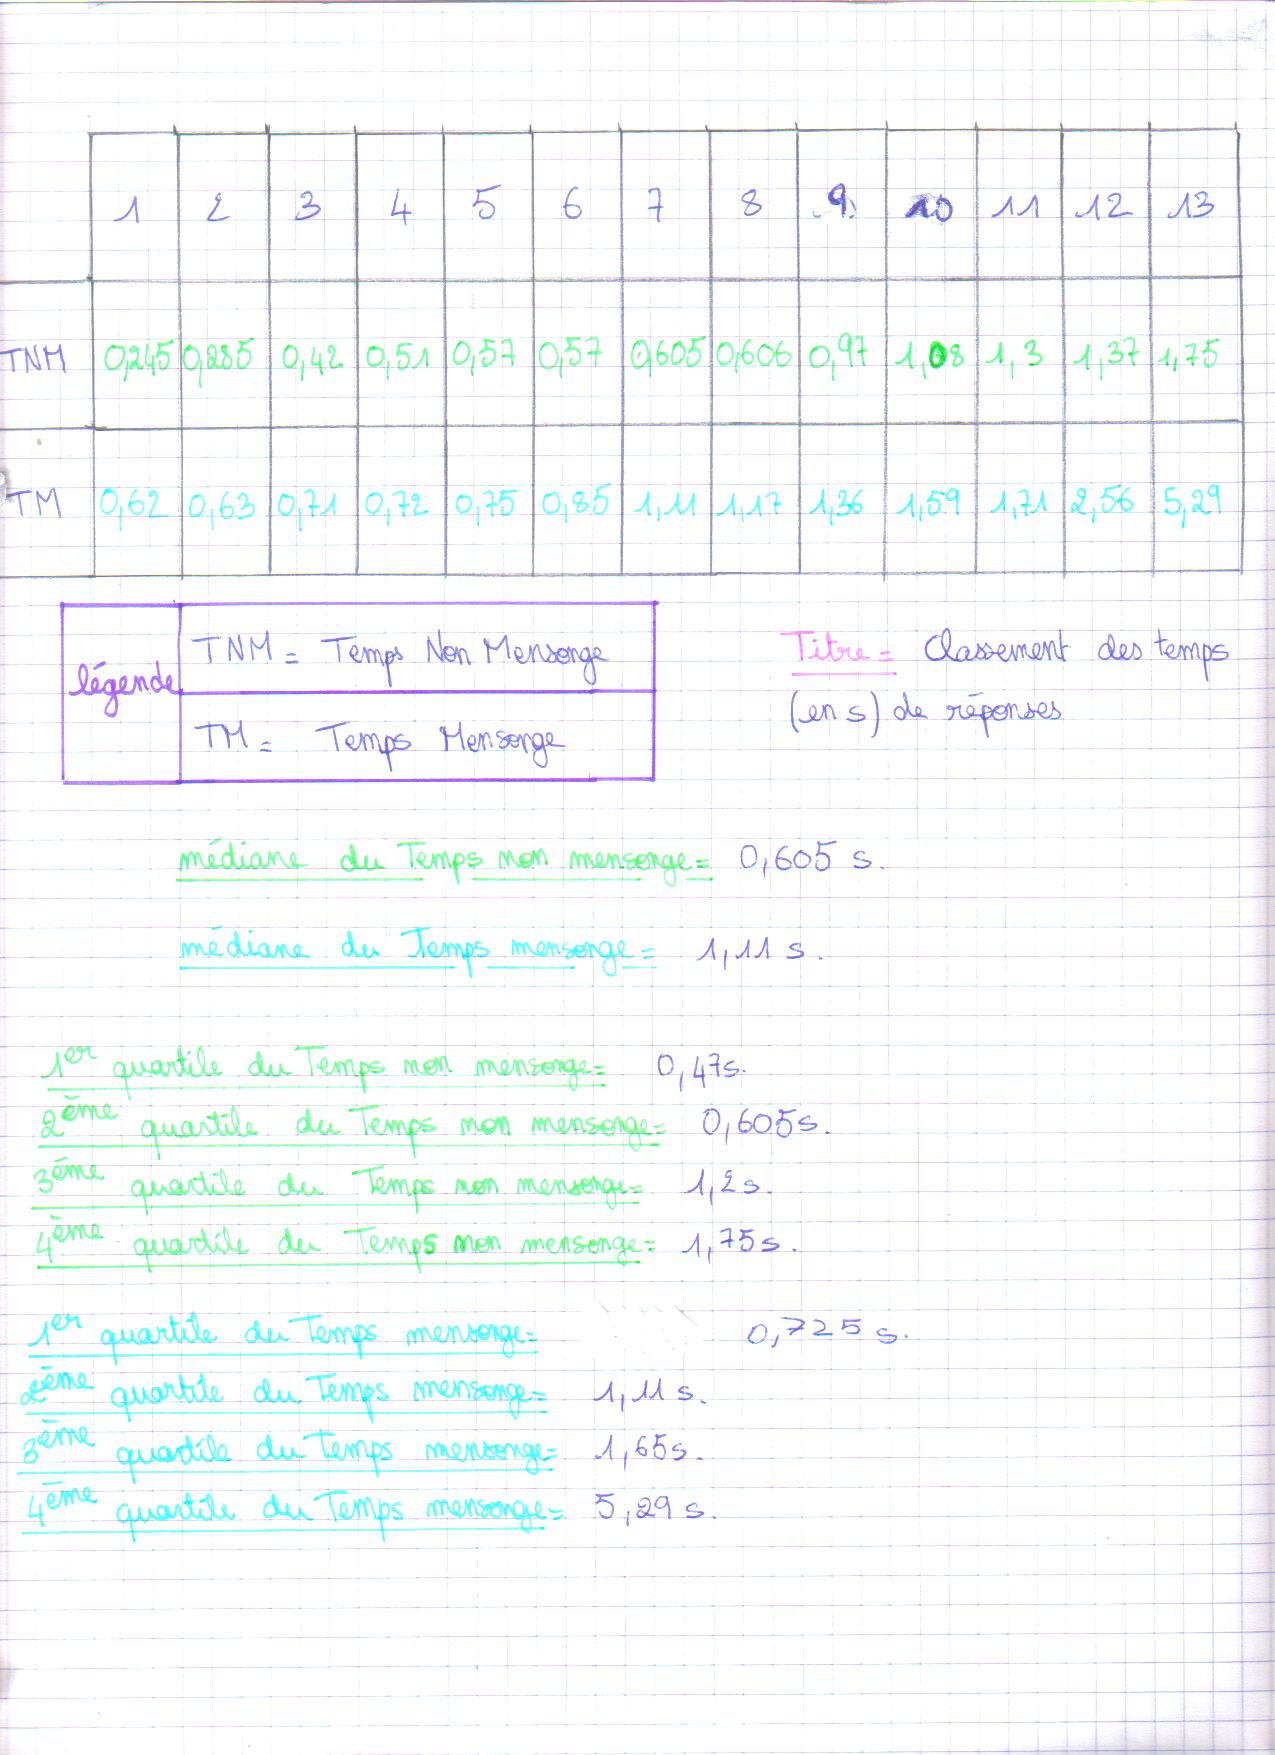 1 2 3 4 5 6 7 8 9 10 11 12 13
TNM 0,245 0,285 0,42 0,51 0,57 0,57 0,605 0,606 0,97 1,08 1,3 1,37 1,75
TM 0,62 0,63 0,71 0,72 0,75 0,85 1,11 1,17 1,36 1,59 1,71 2,56 5,29
légende
TNM = Temps Non Mensonge
TM = Temps Mensonge
Titre = Classement des temps
(en s) de réponses
médiane du Temps non mensonge = 0,605 s.
médiane du Temps mensonge = 1,11 s.
1er quartile du Temps non mensonge = 0,47s.
2ème quartile du Temps non mensonge = 0,605s.
3ème quartile du Temps non mensonge = 1,2s.
4ème quartile du Temps non mensonge = 1,75s.
1er quartile du Temps mensonge = 0,725 s.
2ème quartile du Temps mensonge = 1,11 s.
3ème quartile du Temps mensonge = 1,65s.
4ème quartile du Temps mensonge = 5,29 s.